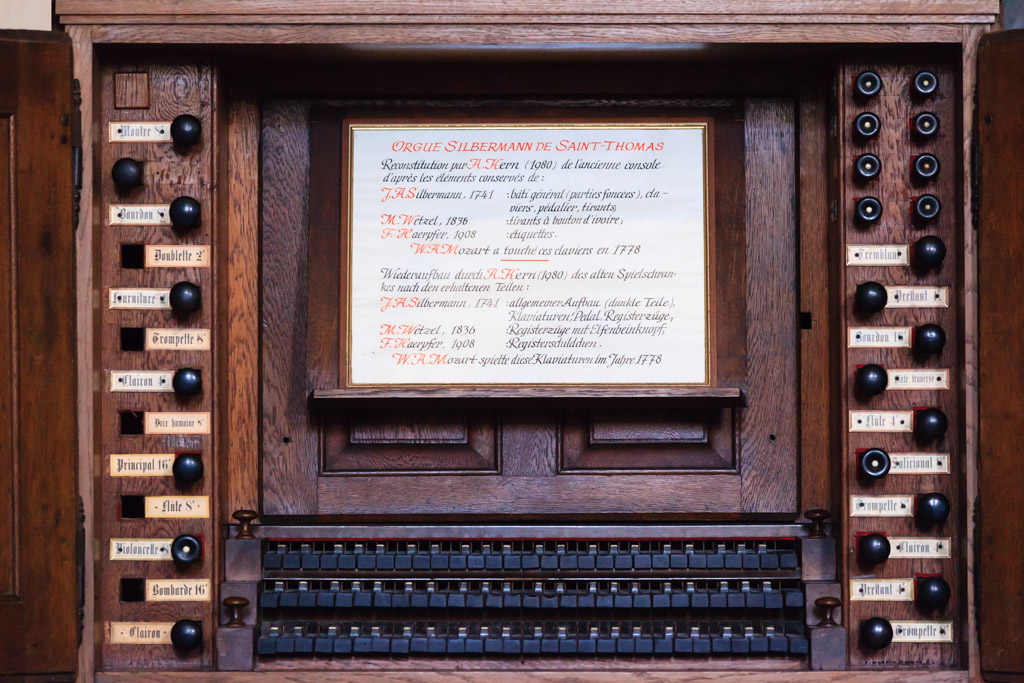 ORGUE SILBERMANN DE SAINT-THOMAS
Reconstitution par A. Kern (1980) de l'ancienne console
d'après les éléments conservés de :
J.A. Silbermann, 1741 : bâti général (parties foncées), cla-
viers, pédalier, tirants;
M. Wetzel, 1836 : tirants à bouton d'ivoire;
F. Haerpfer, 1908 : étiquettes.
W.A. Mozart a touché ces claviers en 1778
Wiederaufbau durch A. Kern (1980) des alten Spielschran-
kes nach den erhaltenen Teilen :
J.A. Silbermann, 1741 : allgemeiner Aufbau (dunkle Teile),
Klaviaturen, Pedal, Registerzüge;
M. Wetzel, 1836 : Registerzüge mit Elfenbeinknopf;
F. Haerpfer, 1908 : Registerschildchen.
W.A. Mozart spielte diese Klaviaturen im Jahre 1778
Montre 8'
Bourdon
Doublette 2'
Fourniture
Trompette 8'
Clairon 4'
Voix humaine 8'
Principal 16'
Flûte 8'
Violoncelle
Bombarde 16'
Clairon
Tremblant
Prestant 4'
Bourdon
Flûte traverse
Flûte 4'
Salicional
Trompette
Clairon
Prestant 4'
Trompette